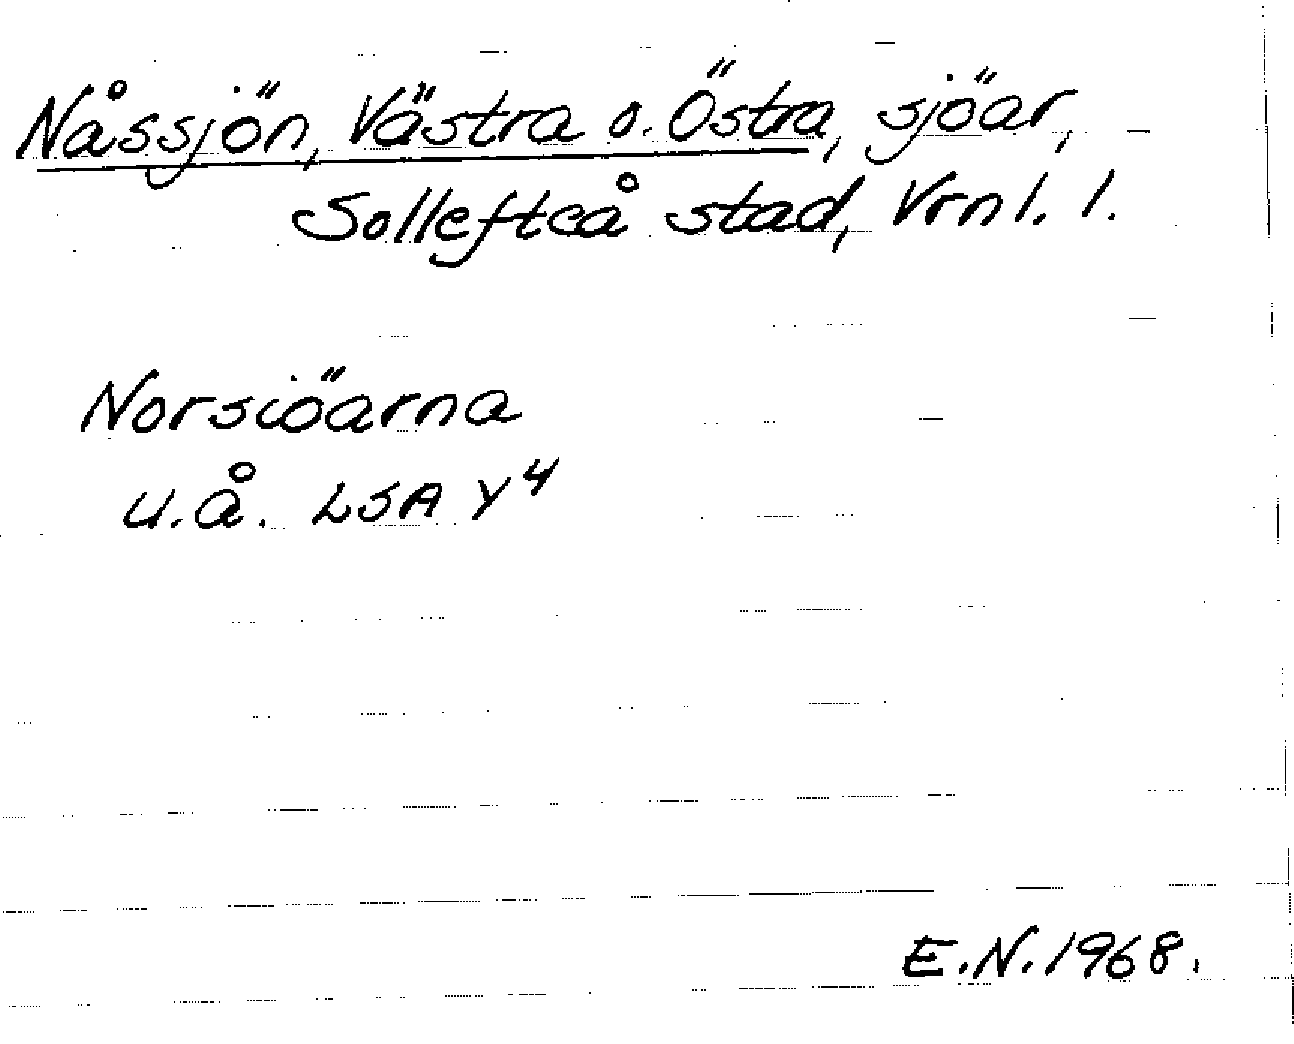 Nåssjön, Västra o. Östra, sjöar,
Sollefteå stad, Vrnl. l.
Norsiöarna
u.å. LSA Y4
E.N. 1968.